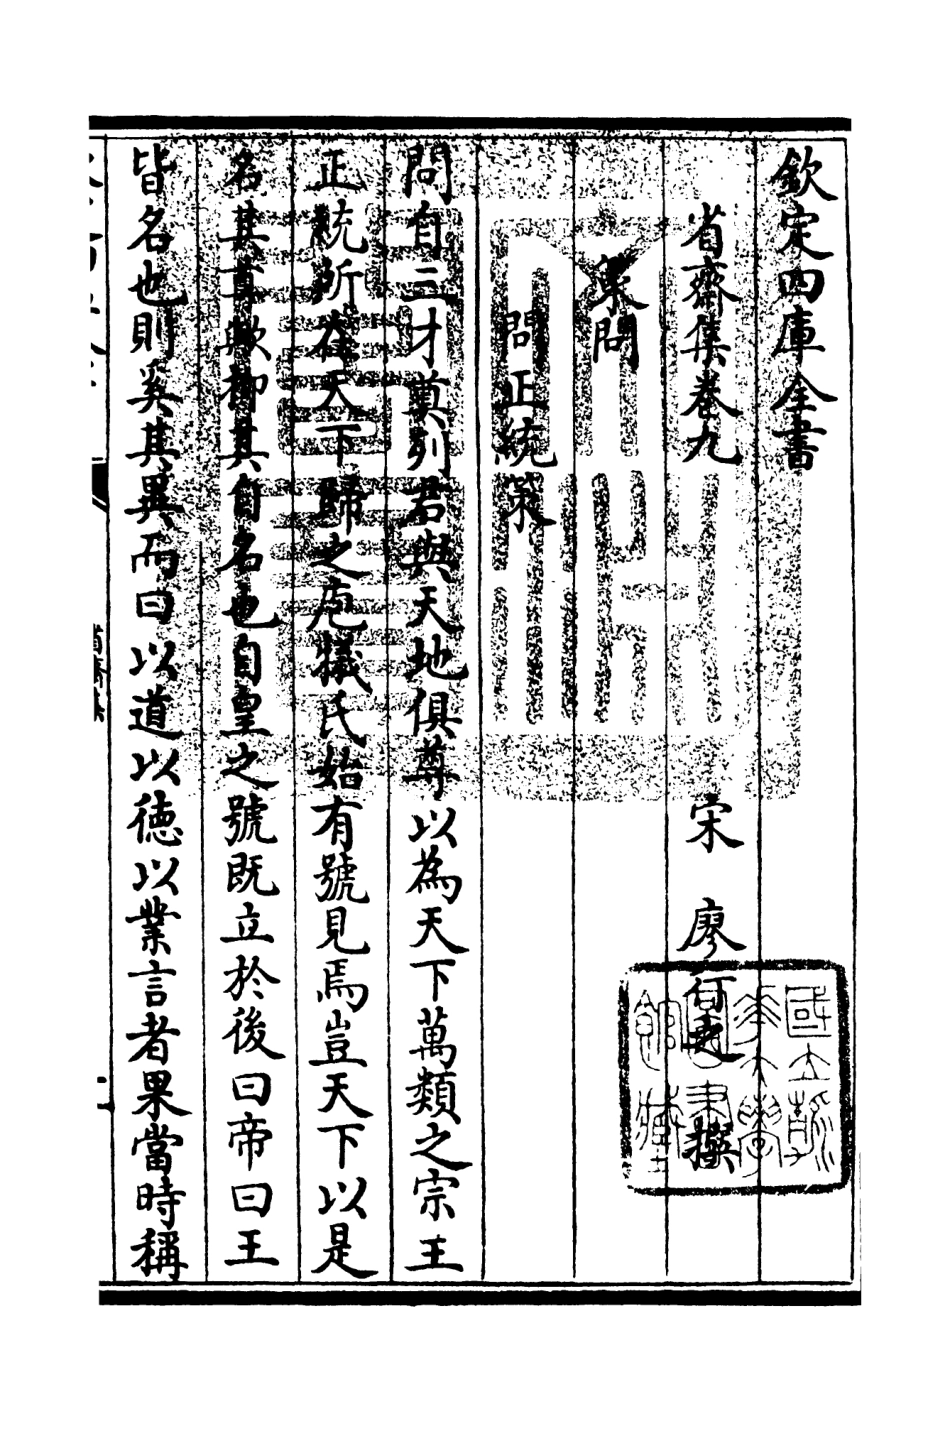 欽定四庫全書
省齋集卷九
宋 廖行之 撰
策問
問正統策
問自三才奠列君與天地俱尊以為天下萬類之宗王
正統所在天下歸之庖犧氏始有號見焉豈天下以是
名其尊歟抑其自名也自皇之號既立於後曰帝曰王
皆名也則奚其異而曰以道以德以業言者果當時稱